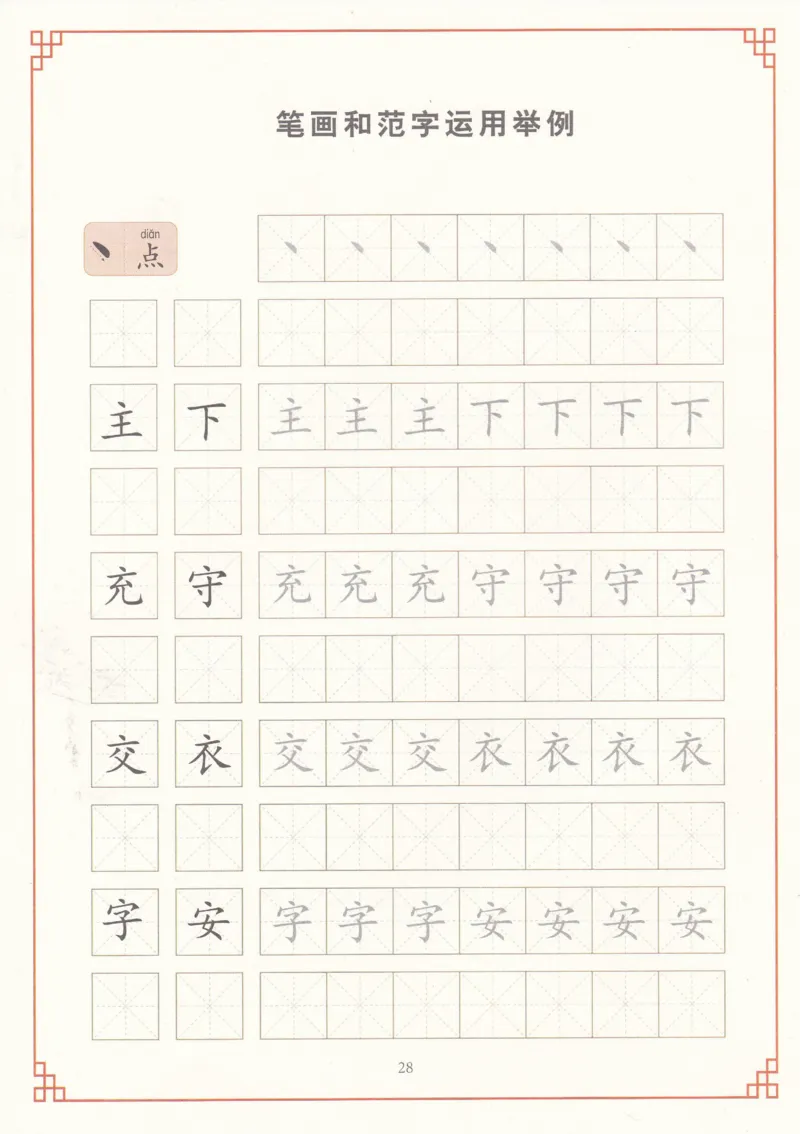 笔画和范字运用举例
diǎn
丶 点 丶 丶 丶 丶 丶 丶 丶
主 下 主 主 主 下 下 下 下
充 守 充 充 充 守 守 守 守
交 衣 交 交 交 衣 衣 衣 衣
字 安 字 字 字 安 安 安 安
28